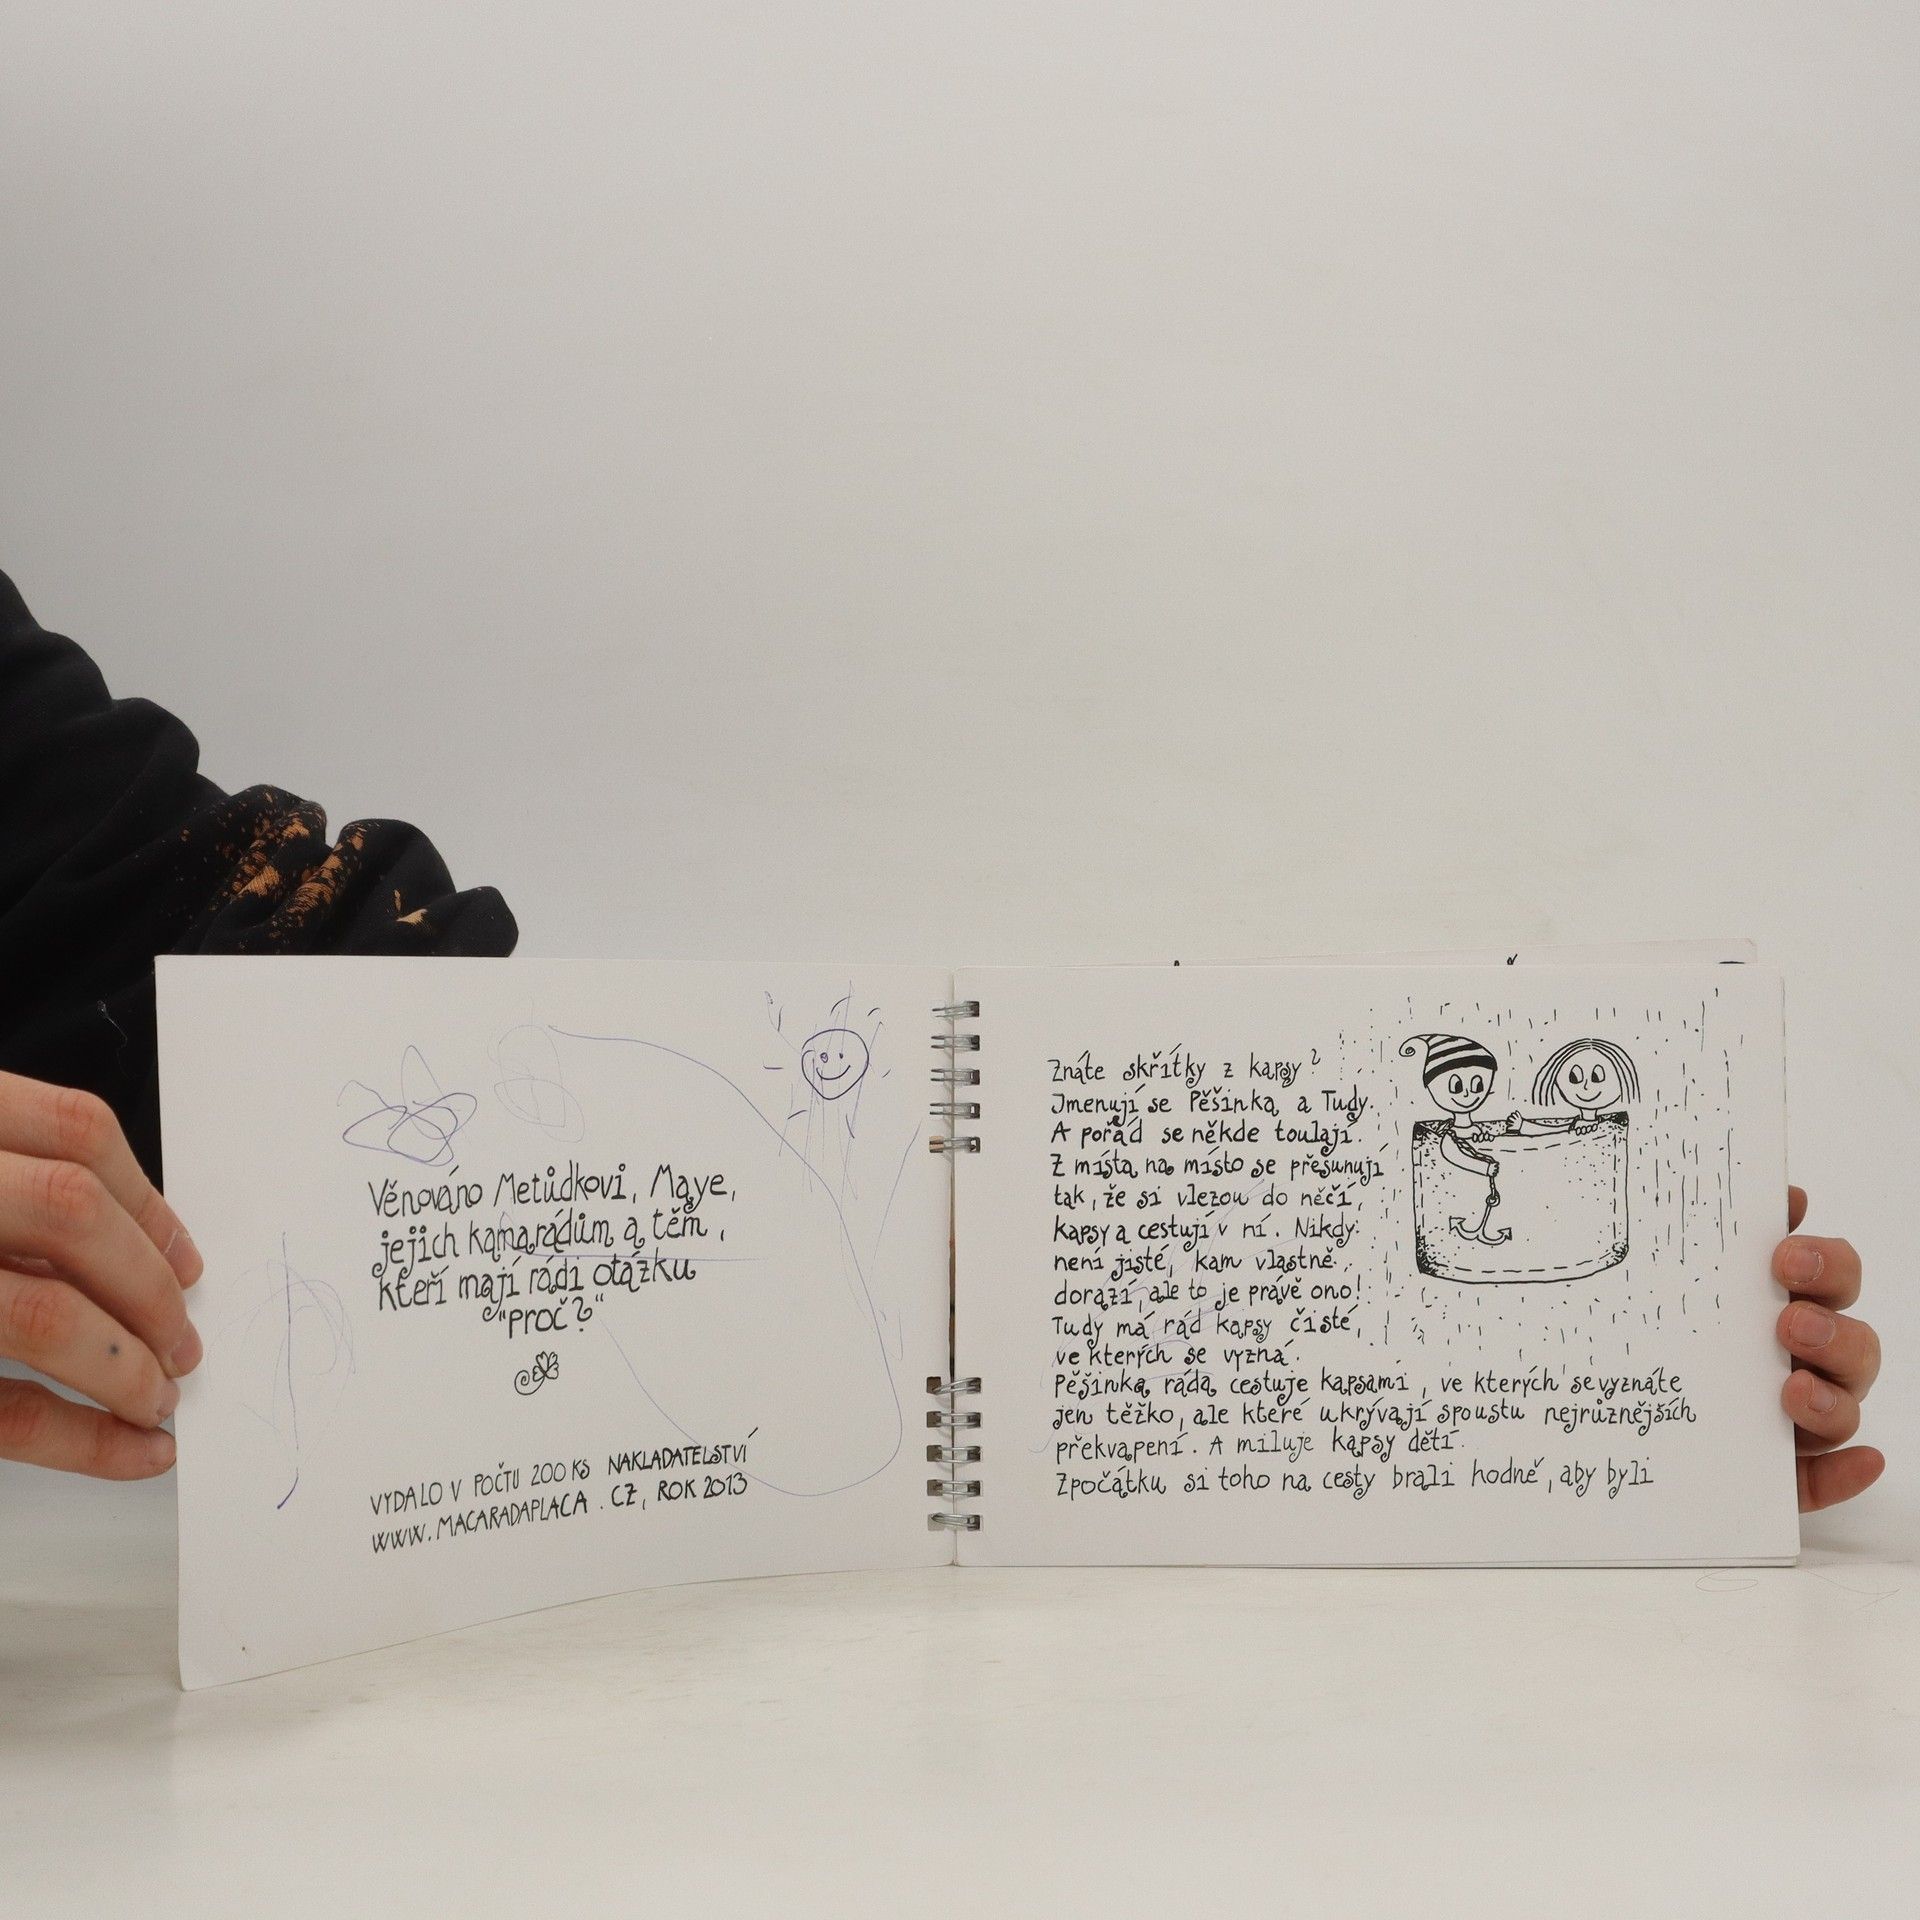 Věnováno Metůdkovi, Maye,
jejich kamarádům a těm,
kteří mají rádi otázku
"proč?"
VYDALO V POČTU 200 KS NAKLADATELSTVÍ
WWW.MACARADAPLACA.CZ, ROK 2013
Znáte skřítky z kapsy?
Jmenují se Pěšinka a Tudy.
A pořád se někde toulají.
Z místa na místo se přesunují
tak, že si vlezou do něčí
kapsy a cestují v ní. Nikdy
není jisté, kam vlastně
dorazí, ale to je právě ono!
Tudy má rád kapsy čisté,
ve kterých se vyzná.
Pěšinka ráda cestuje kapsami, ve kterých se vyznáte
jen těžko, ale které ukrývají spoustu nejrůznějších
překvapení. A miluje kapsy dětí.
Zpočátku si toho na cesty brali hodně, aby byli